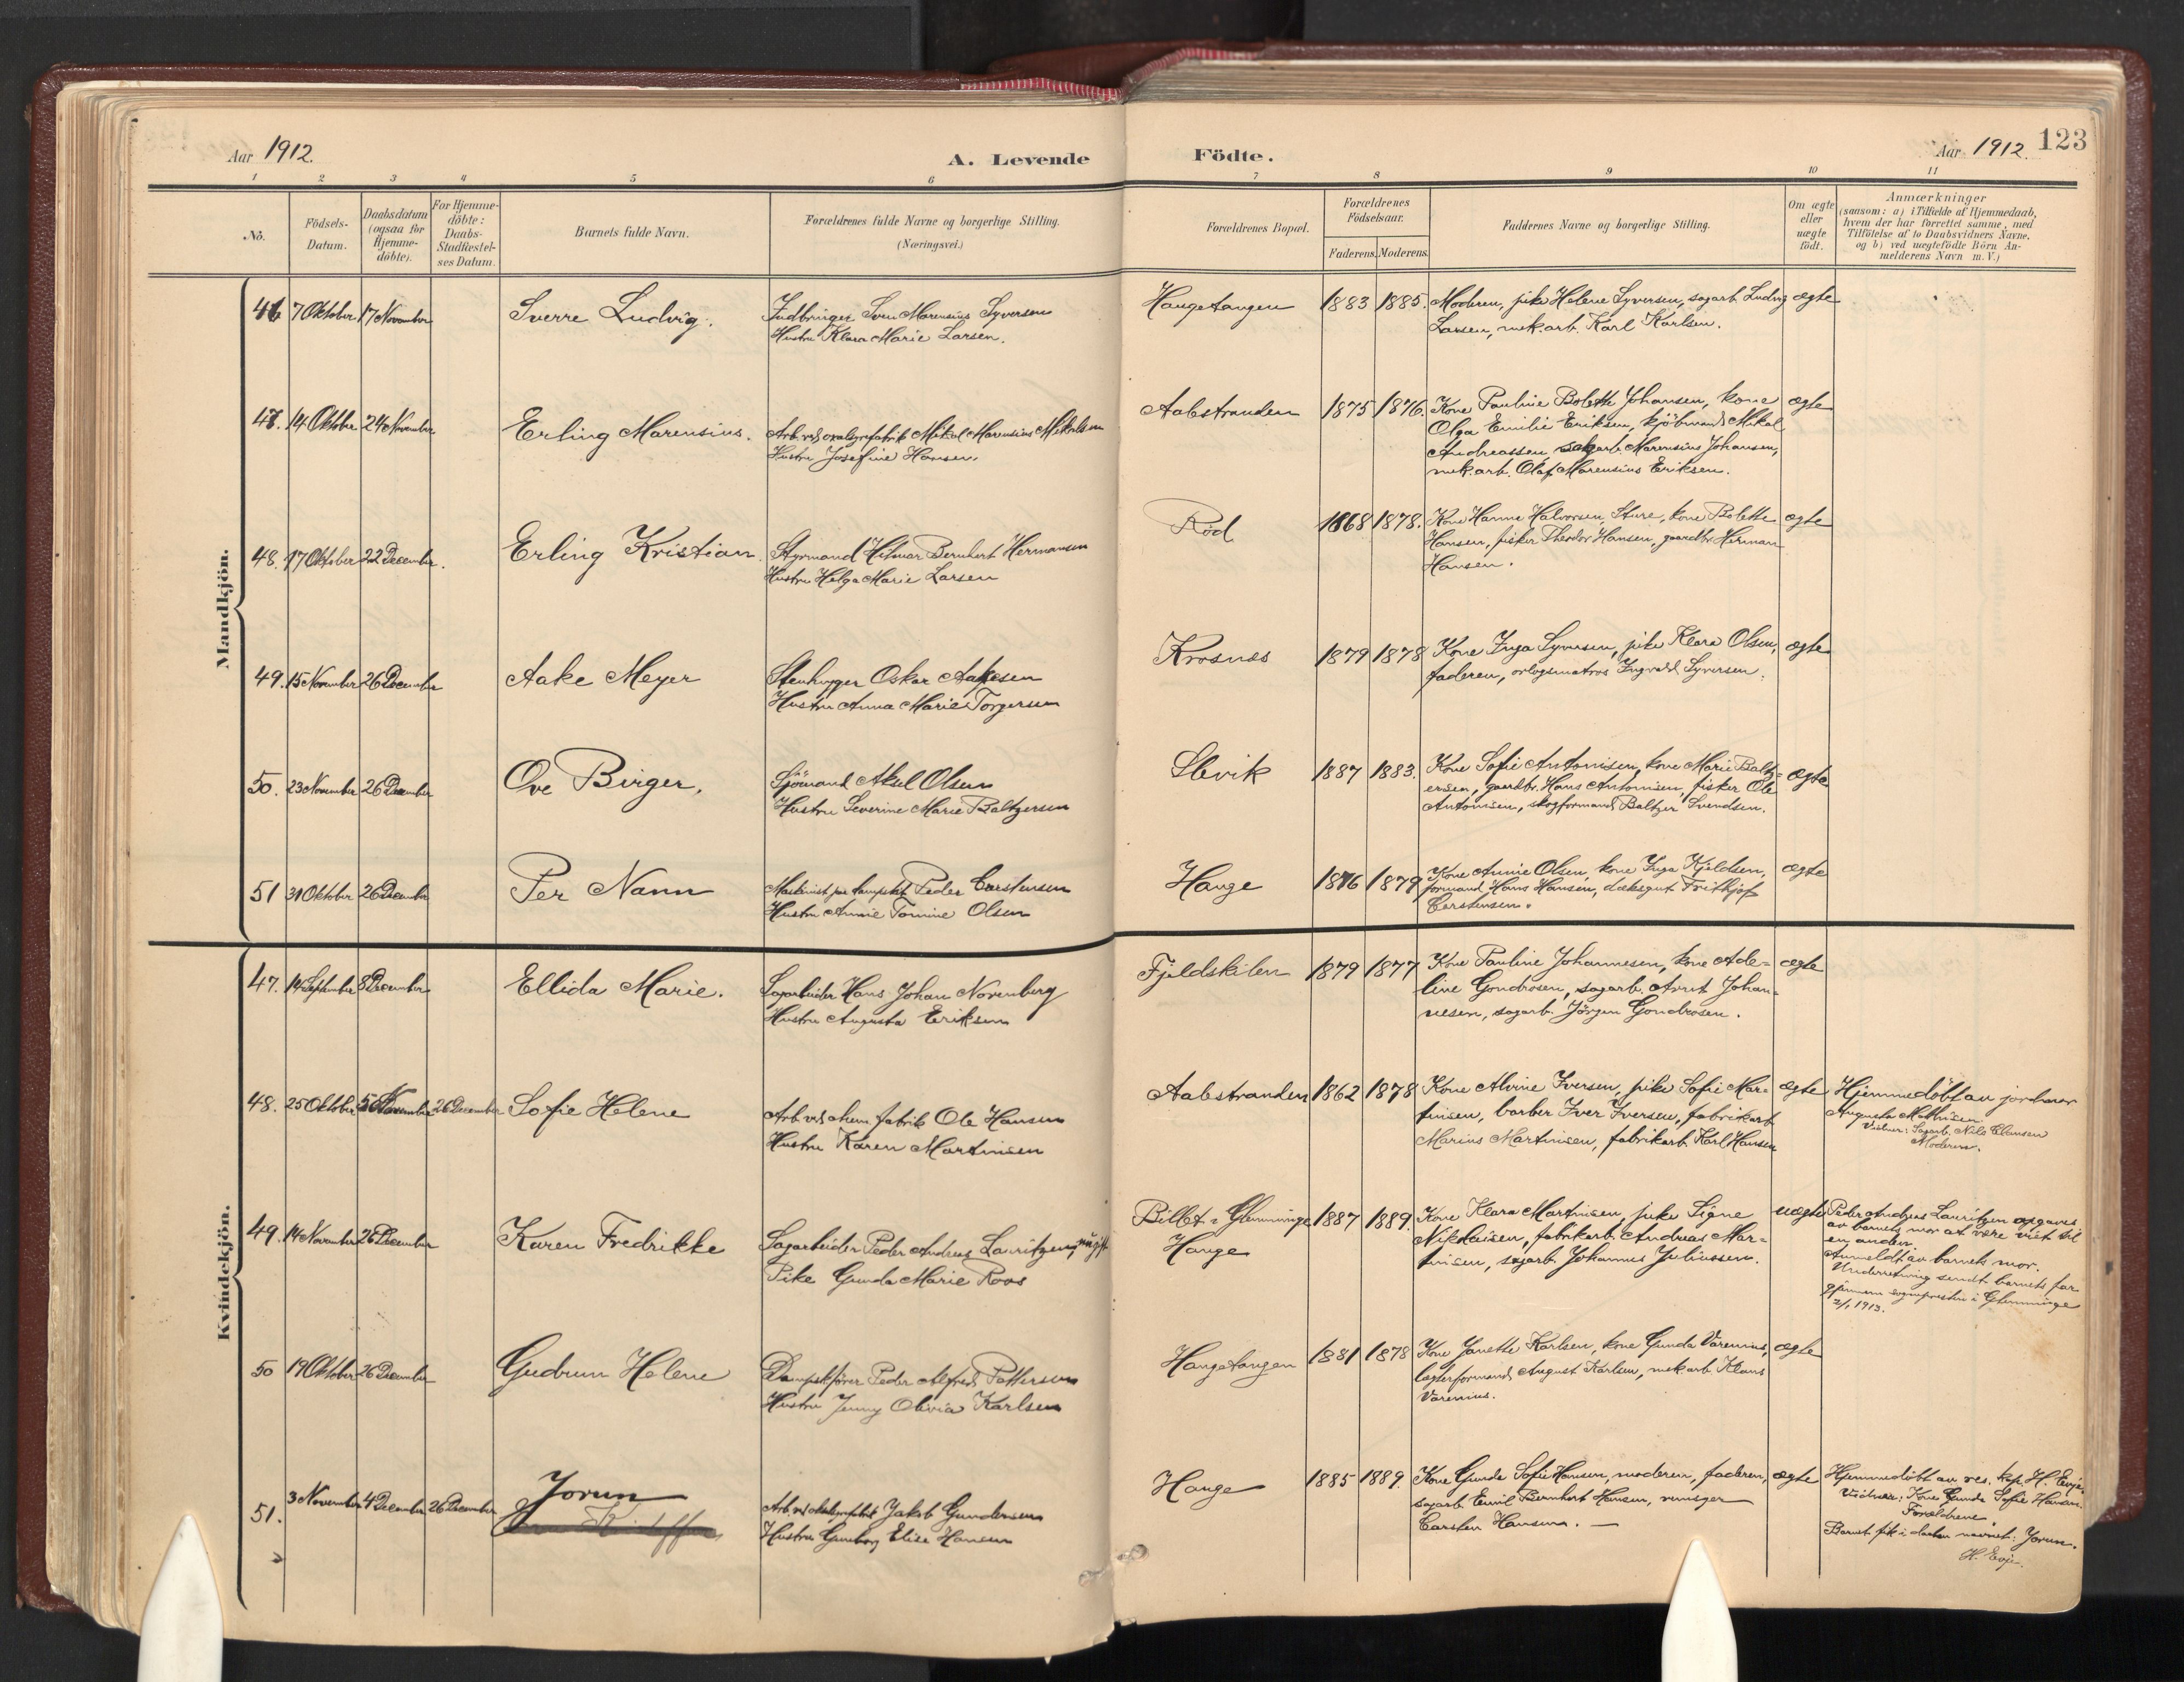 Aar 1912.
A. Levende
Födte.
Aar 1912.
123
1 2 3 4 5 6 7 8 9 10 11
No.
Födsels-
Datum.
Daabsdatum
(ogsaa for
Hjemme-
döbte).
For Hjemme-
döbte:
Daabs-
Stadfæstel-
ses Datum.
Barnets fulde Navn.
Forældrenes fulde Navne og borgerlige Stilling.
(Næringsvei.)
Forældrenes Bopæl.
Forældrenes
Födselsaar.
Faderens. Moderens.
Faddernes Navne og borgerlige Stilling.
Om ægte
eller
uægte
födt.
Anmærkninger
(saasom: a) i Tilfælde af Hjemmedaab,
hvem der har forrettet samme, med
Tilföielse af to Daabsvidners Navne,
og b) ved uægtefödte Börn An-
melderens Navn m. V.)
Mandkjön.
46 7 Oktober 17 November
Sverre Ludvig.
Indbringer Sven Marensius Syversen
Hustru Klara Marie Larsen.
Haugetangen
1883 1885.
Moderen, pike Helene Syversen, sagarb. Ludvig
Larsen, mek. arb. Karl Karlsen.
ægte
47. 14 Oktober 24 November
Erling Marensius.
Arb. ved oxalsyrefabrik Mikal Marensius Mikalsen
Hustru Josefine Hansen.
Aalestranden
1875 1876.
Kone Pauline Bolette Johansen, kone
Olga Emilie Eriksen, kjöbmand Mikal
Andreassen, sagarb. Marensius Johansen,
mek. arb. Olaf Marensius Eriksen.
ægte
48. 17 Oktober 22 December.
Erling Kristian.
Styrmand Hilmar Bernhert Hermansen
Hustru Helga Marie Larsen
Röd
1868 1878.
Kone Hanna Halvorsen, Sture, kone Bolette
Hansen, fisker Theodor Hansen, gaardbr. Herman
Hansen.
ægte
49. 15 November 26 December
Aake Meyer
Stenhugger Oskar Aakesen
Hustru Anna Marie Torgersen
Krosnes
1879 1878
Kone Inga Syversen, pike Klara Olsen,
faderen, orlogsmatros Ingvald Syversen.
ægte
50. 23 November 26 December
Ove Birger.
Sjömand Aksel Olsen
Hustru Severine Marie Baltzersen
Slevik
1887 1883.
Kone Sofie Antonisen, kone Marie Baltz-
ersen, gaardbr. Hans Antonisen, fisker Ole
Antonisen, skogformand Baltzer Svendsen.
ægte
51 31 Oktober 26 December
Per Nann
Maskinist paa dampskib Peder Carstensen
Hustru Annie Tomine Olsen
Hauge
1876 1879
Kone Annie Olsen, kone Inga Kjeldsen,
formand Hans Hansen, dæksgut Frithjof
Carstensen.
ægte
Kvindekjön.
47. 14 September 8 December
Ellida Marie.
Sagarbeider Hans Johan Norenberg
Hustru Augusta Eriksen
Fjeldskilen
1879 1877
Kone Pauline Johannesen, kone Ade-
line Gondrosen, sagarb. Arnt Johan-
nesen, sagarb. Jörgen Gondrosen.
ægte
48. 25 Oktober 5 November 26 December
Sofie Helene
Arb. ved chem. fabrik Ole Hansen
Hustru Karen Martinisen
Aalestranden
1862 1878
Kone Alvine Iversen, pike Sofie Mar-
tinisen, barber Iver Iversen, fabrikarb
Marius Martinisen, fabrikarb. Karl Hansen
ægte
Hjemmedöbt av jordmor
Augusta Mathisen.
Vidner: Sagarb. Nils Clausen
Moderen.
49. 14 November 26 December
Karen Fredrikke
Sagarbeider Peder Andreas Lauritzen, ugift
Pike Gunda Marie Roos
Billet i Glemminge
Hauge
1887 1889.
Kone Klara Martinisen, pike Signe
Nikolaisen, fabrikarb. Andreas Mar-
tinisen, sagarb. Johannes Juliussen.
uægte
Peder Andreas Lauritzen opgaves
av barnets mor at være viet til
en anden.
Anmeldt av barnets mor.
Underretning sendt barnets far
gjennem sogneprесten i Glemminge
2/1 1913.
50 19 Oktober 26 December
Gudrun Helene
Dampskfører Peder Alfred Pettersen
Hustru Jenny Olivia Karlsen
Haugetangen
1881 1878
Kone Janette Karlsen, kone Gunda Varenius,
lagerformand August Karlsen, mek. arb. Klaus
Varenius.
ægte
51. 3 November 4 December 26 December
Jorun
Arb. ved oxalsyrefabrik Jakob Gundersen
Hustru Gunborg Elise Hansen
Hauge
1885 1889.
Kone Gunda Sofie Hansen, moderen, faderen,
sagarb. Emil Bernhart Hansen, rensger
Carsten Hansen. —
ægte
Hjemmedöbt av res. kap. H. Evje.
Vidner: Kone Gunda Sofie Hansen.
Forældrene.
Barnet fik i daaben navnet: Jorun.
H. Evje.